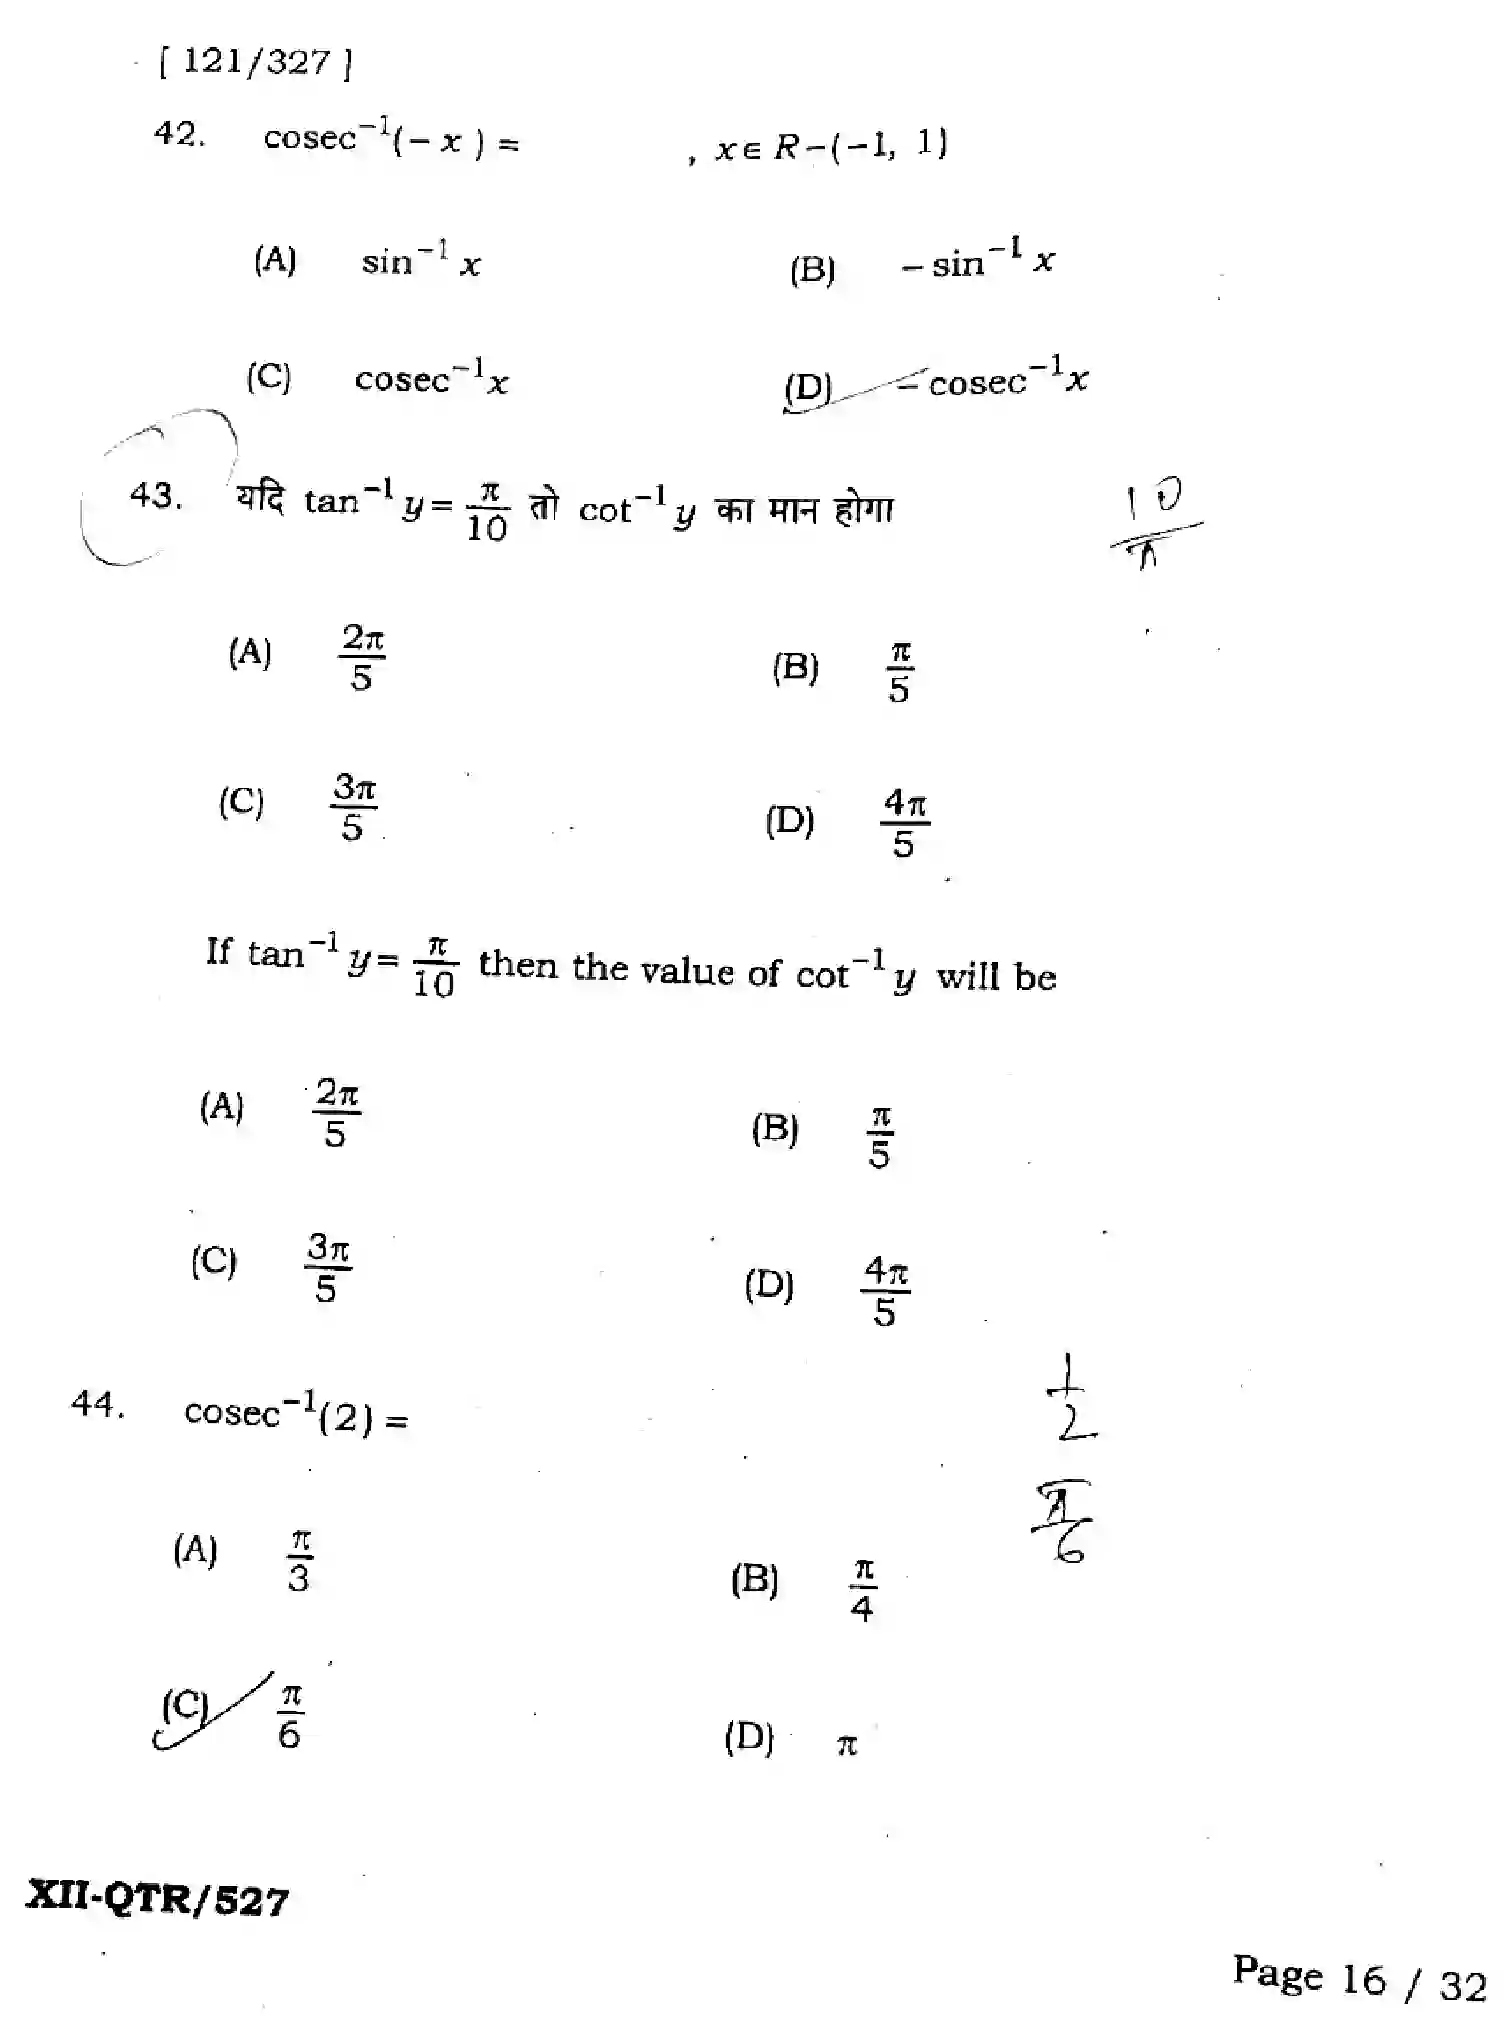 [ 121/327 ]
42. cosec⁻¹(– x ) = , x ∈ R – (–1, 1)
(A) sin⁻¹ x (B) – sin⁻¹ x
(C) cosec⁻¹x (D) – cosec⁻¹x
43. यदि tan⁻¹ y = π/10 तो cot⁻¹ y का मान होगा
10/π
(A) 2π/5 (B) π/5
(C) 3π/5 (D) 4π/5
If tan⁻¹ y = π/10 then the value of cot⁻¹ y will be
(A) 2π/5 (B) π/5
(C) 3π/5 (D) 4π/5
44. cosec⁻¹(2) =
1/2
π/6
(A) π/3 (B) π/4
(C) π/6 (D) π
XII-QTR/527
Page 16 / 32